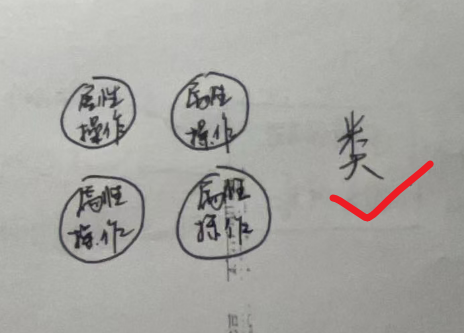 属性
操作
属性
操作
类
属性
操作
属性
操作